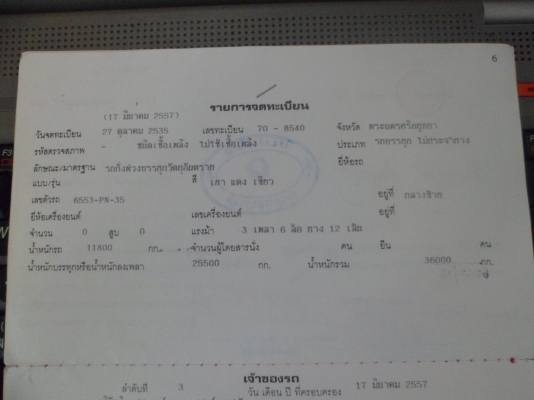 6
รายการจดทะเบียน
(17 มีนาคม 2557)
วันจดทะเบียน 27 ตุลาคม 2535 เลขทะเบียน 70 - 8540 จังหวัด พระนครศรีอยุธยา
รหัสตรวจสภาพ - ชนิดเชื้อเพลิง ไม่ใช้เชื้อเพลิง ประเภท รถบรรทุก ไม่ประจำทาง
ลักษณะ/มาตรฐาน รถกึ่งพ่วงบรรทุกวัตถุอันตราย ยี่ห้อรถ
แบบ/รุ่น สี เทา แดง เขียว
เลขตัวรถ 6553-PN-35 อยู่ที่ กลางซ้าย
ยี่ห้อเครื่องยนต์ เลขเครื่องยนต์ อยู่ที่
จำนวน 0 สูบ 0 แรงม้า 3 เพลา 6 ล้อ ยาง 12 เส้น
น้ำหนักรถ 11800 กก. จำนวนผู้โดยสารนั่ง คน ยืน คน
น้ำหนักบรรทุกหรือน้ำหนักลงเพลา 25500 กก. น้ำหนักรวม 36000 กก.
เจ้าของรถ
ลำดับที่ 3 วัน เดือน ปี ที่ครอบครอง 17 มีนาคม 2557